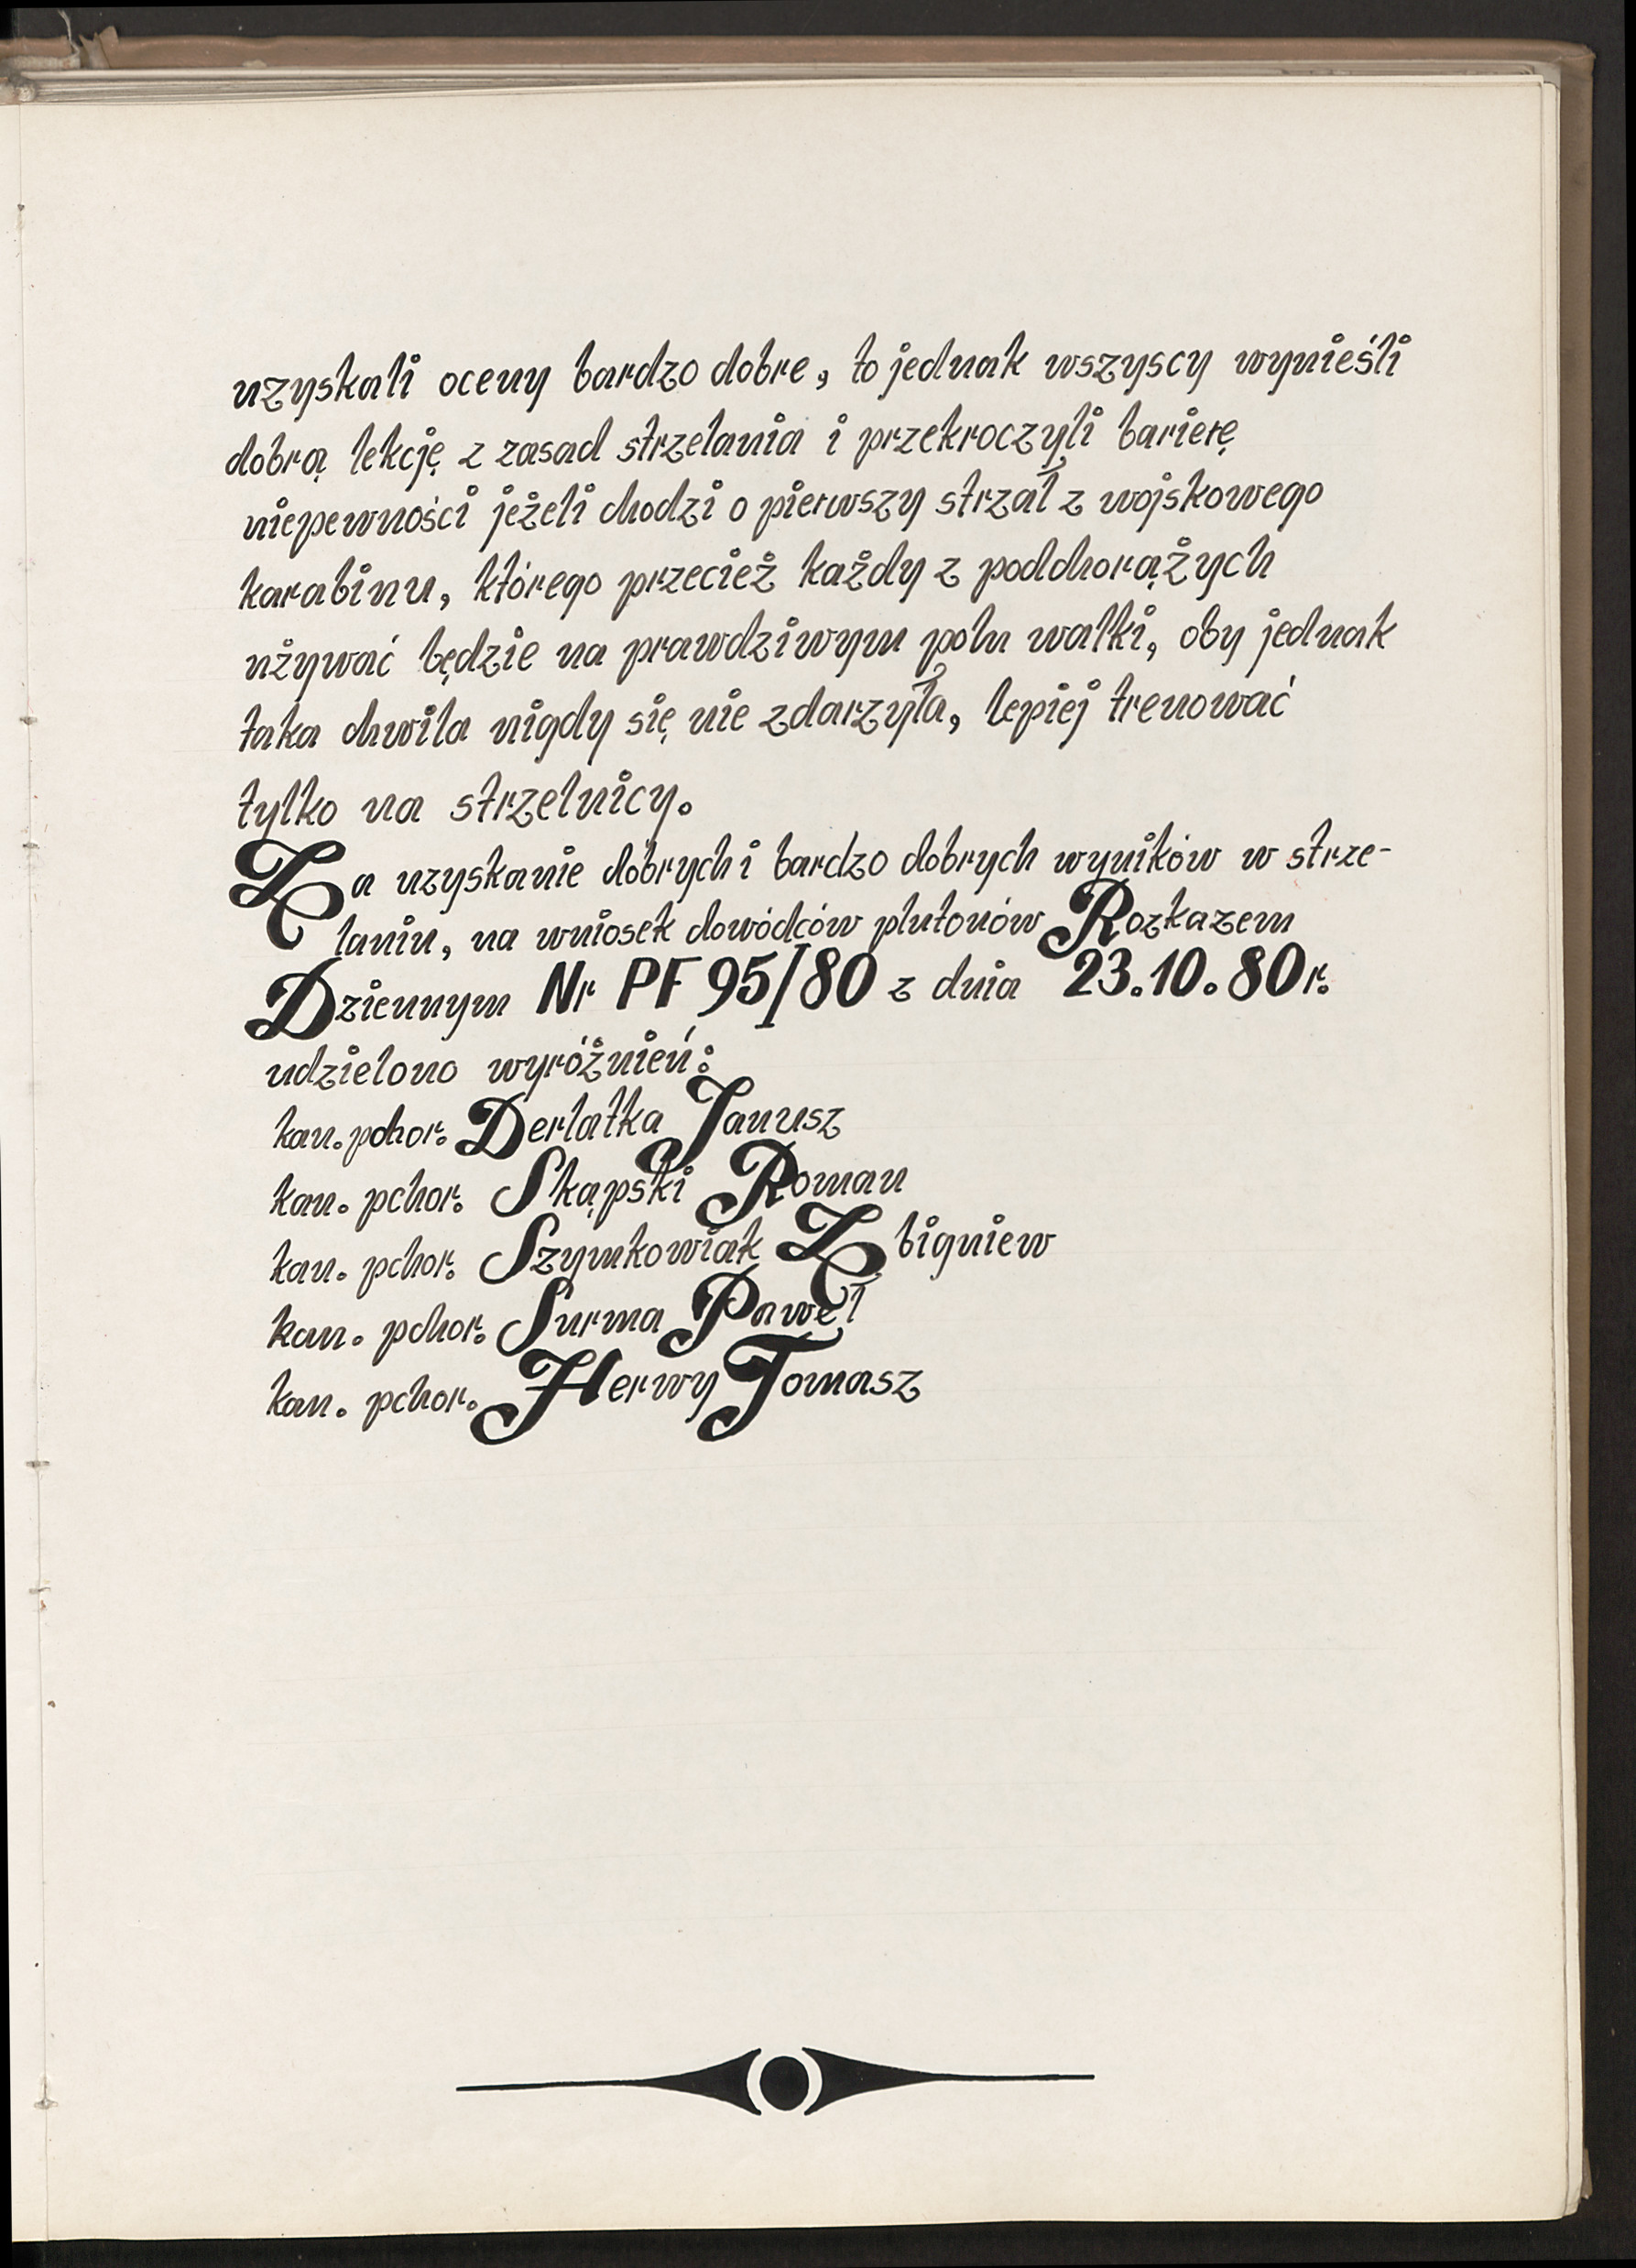 uzyskali oceny bardzo dobre, to jednak wszyscy wynieśli
dobrą lekcję z zasad strzelania i przekroczyli barierę
niepewności jeżeli chodzi o pierwszy strzał z wojskowego
karabinu, którego przecież każdy z podchorążych
używać będzie na prawdziwym polu walki, oby jednak
taka chwila nigdy się nie zdarzyła, lepiej trenować
tylko na strzelnicy.
Za uzyskanie dobrych i bardzo dobrych wyników w strze-
laniu, na wniosek dowódców plutonów Rozkazem
Dziennym Nr PF 95/80 z dnia 23.10.80r.
udzielono wyróżnień:
kan. pchor. Derlatka Janusz
kan. pchor. Skąpski Roman
kan. pchor. Szymkowiak Zbigniew
kan. pchor. Surma Paweł
kan. pchor. Herwy Tomasz